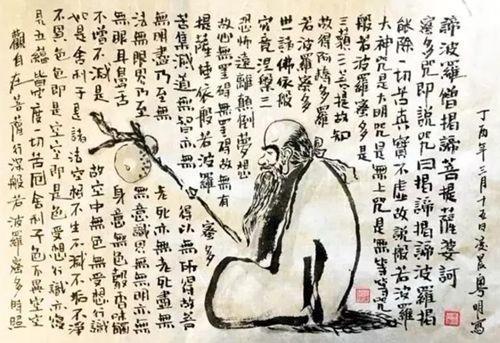 觀自在菩薩行深般若波羅蜜多時照
見五蘊皆空度一切苦厄舍利子色不異空空
不異色色即是空空即是色受想行識亦復
如是舍利子是諸法空相不生不滅不垢不淨
不增不減是故空中無色無受想行識
無眼耳鼻舌身意無色聲香味觸
法無眼界乃至無意識界無無明亦無
無明盡乃至無老死亦無老死盡無
苦集滅道無智亦無得以無所得故菩
提薩埵依般若波羅蜜多
故心無罣礙無罣礙故無有
恐怖遠離顛倒夢想
究竟涅槃三
世諸佛依般
若波羅蜜多
故得阿耨多羅
三藐三菩提故知
般若波羅蜜多是
大神咒是大明咒是無上咒是無等等咒
能除一切苦真實不虛故說般若波羅
蜜多咒即說咒曰揭諦揭諦波羅揭
諦波羅僧揭諦菩提薩婆訶
丁酉年三月十五日凌晨粵明寫